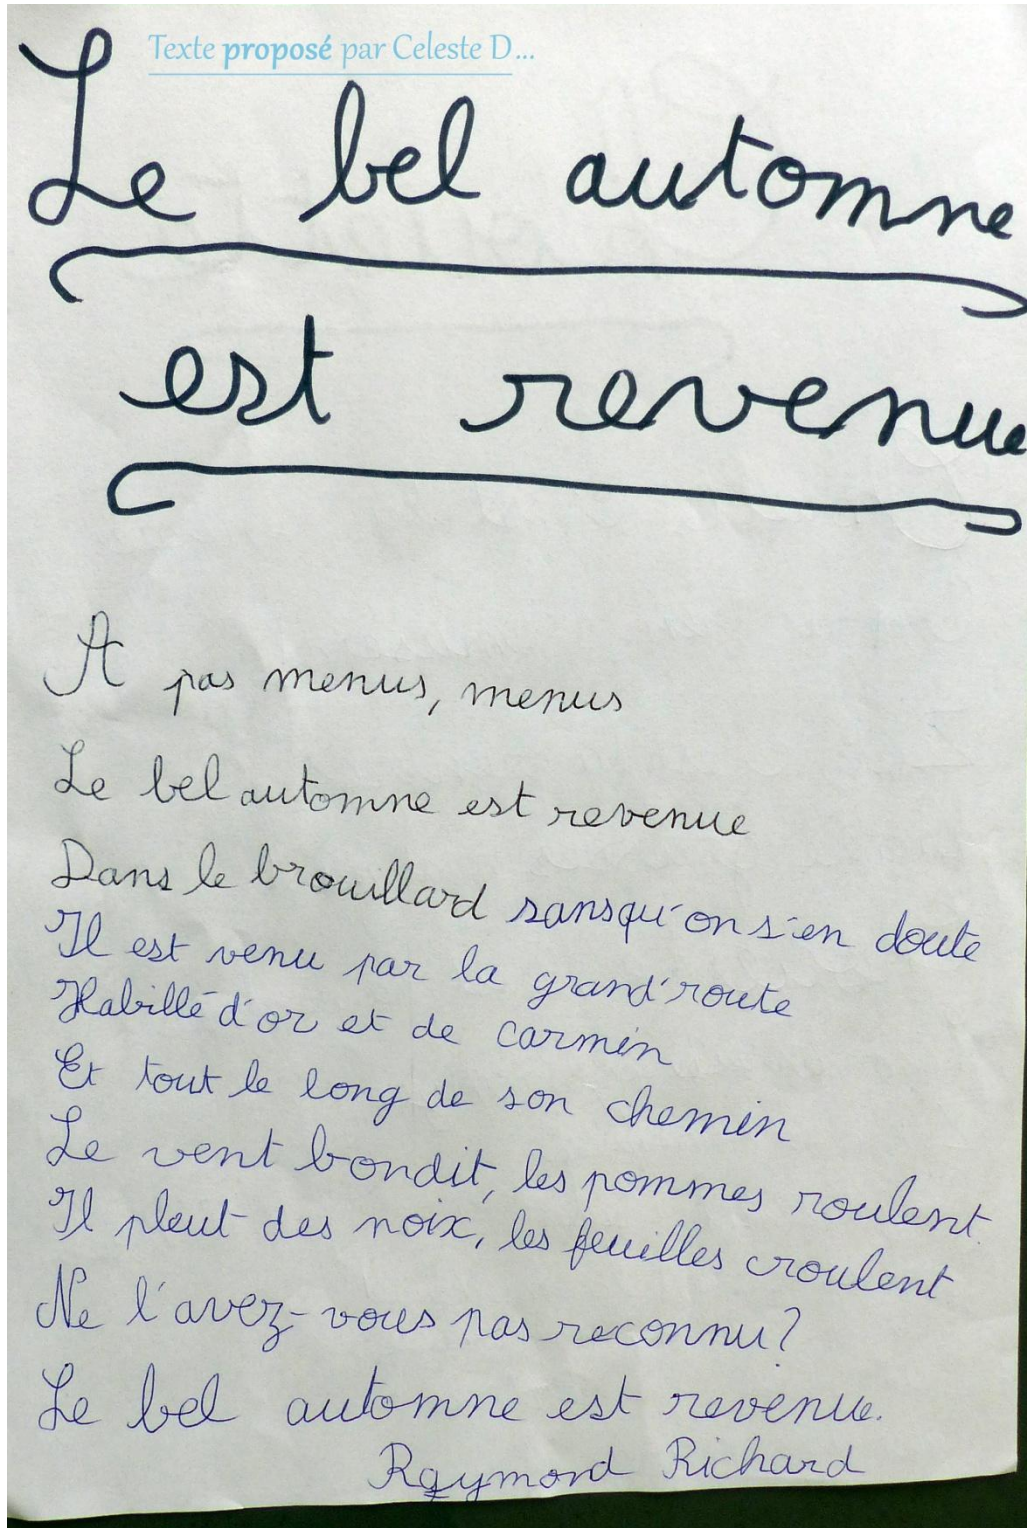 Texte proposé par Celeste D...
Le bel automne
est revenue
A pas menus, menus
Le bel automne est revenue
Dans le brouillard sansqu'on s'en doute
Il est venu par la grand'route
Habillé d'or et de carmin
Et tout le long de son chemin
Le vent bondit, les pommes roulent.
Il pleut des noix, les feuilles croulent
Ne l'avez-vous pas reconnu?
Le bel automne est revenue.
Raymond Richard